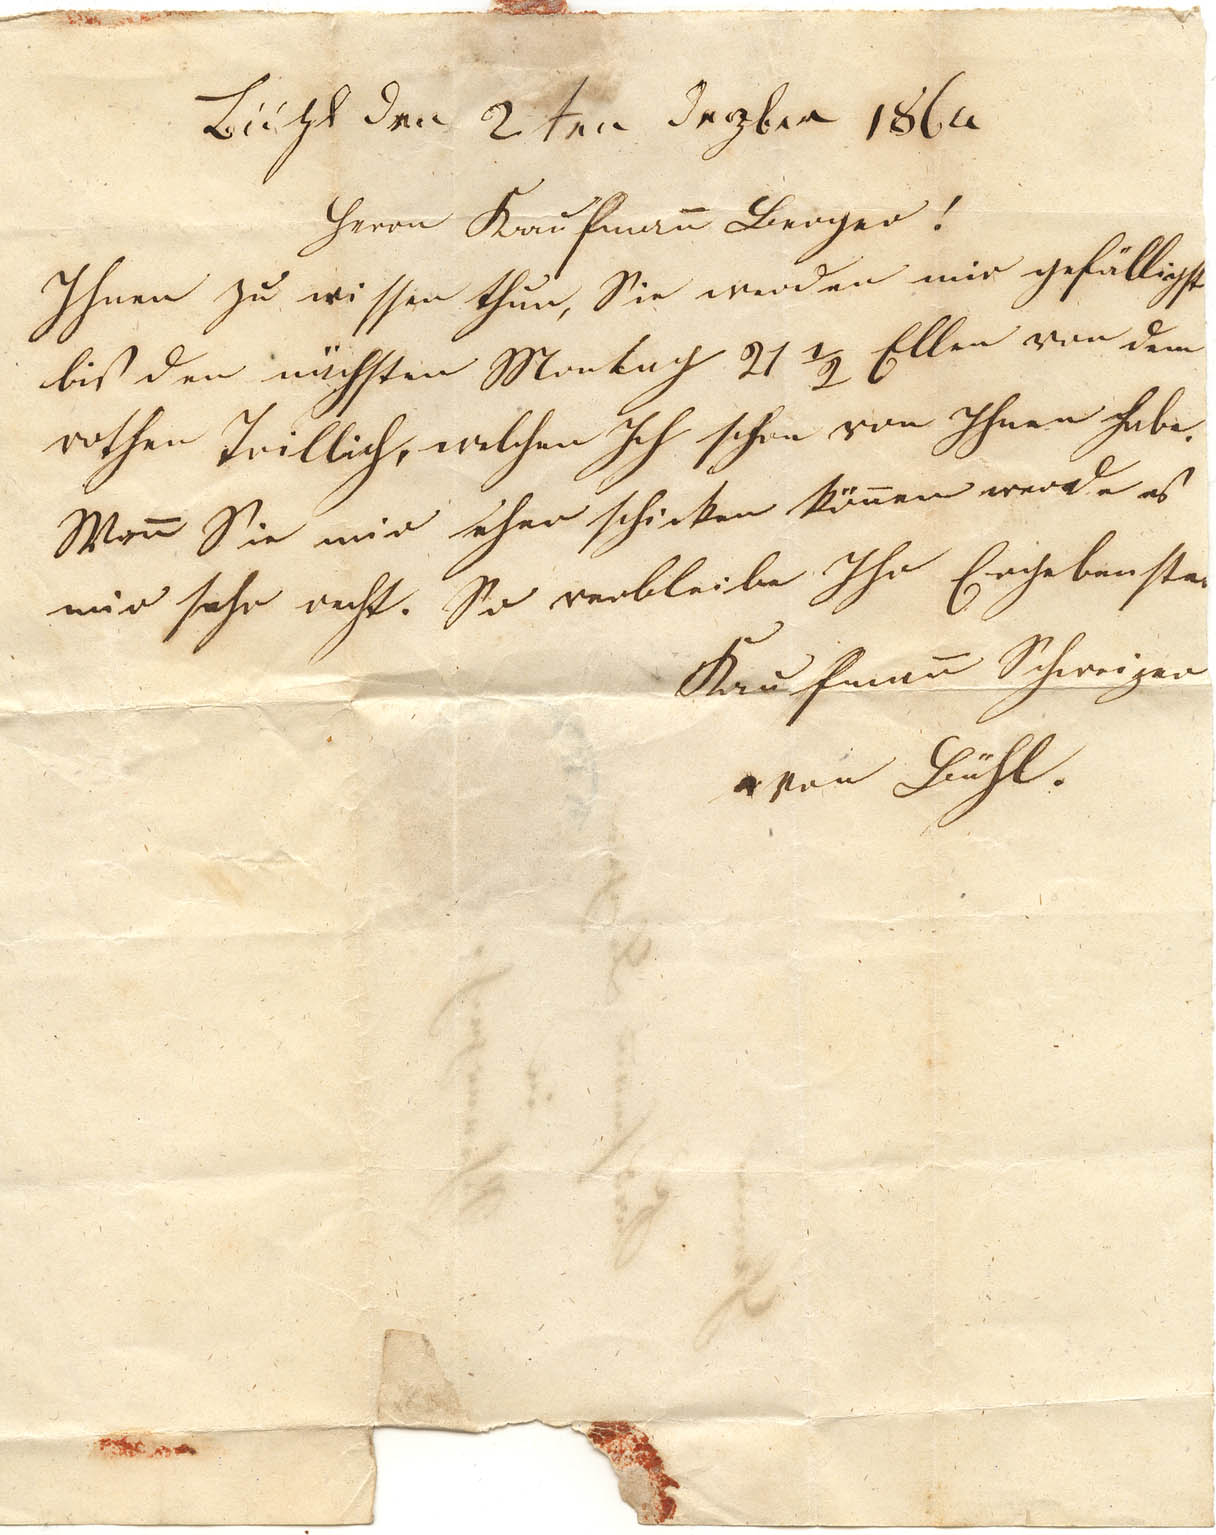 Bühl den 2ten Dezber 1864
Herrn Kaufmann̄ Berger!
Ihnen zu wissen thun, Sie werden mir gefälligst
bis den nächsten Montag 21 ½ Ellen von dem
rothen Trillich, welchen Ich schon von Ihnen habe.
Wen̄ Sie mir eher schicken kön̄en werde es
mir sehr recht. So verbleibe Ihr Ergebenster
Kaufman̄ Schweizer
von Bühl.